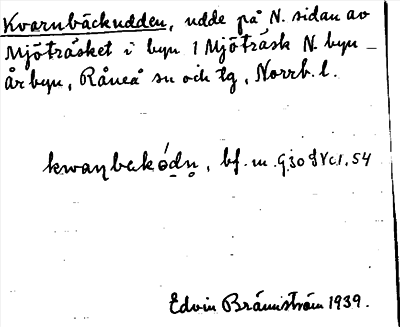 Kvarnbäckudden, udde på N. sidan av
Mjöträsket i byn 1 Mjöträsk N. byn –
år byn, Råneå sn och tg, Norrb. l.
kwaŋbakódn̥, bf. m. G30 f Vc1, 54
Edvin Brännström 1939.